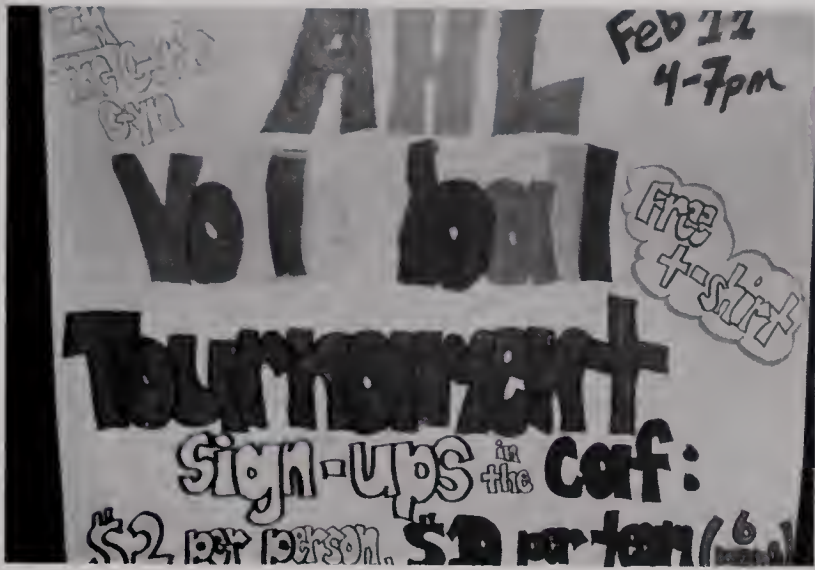 In
Gym
AHL
Feb 11
4-7pm
Vol ball
Free
t-shirt
Tournament
Sign-ups in the Caf:
$2 per person. $10 per team (6